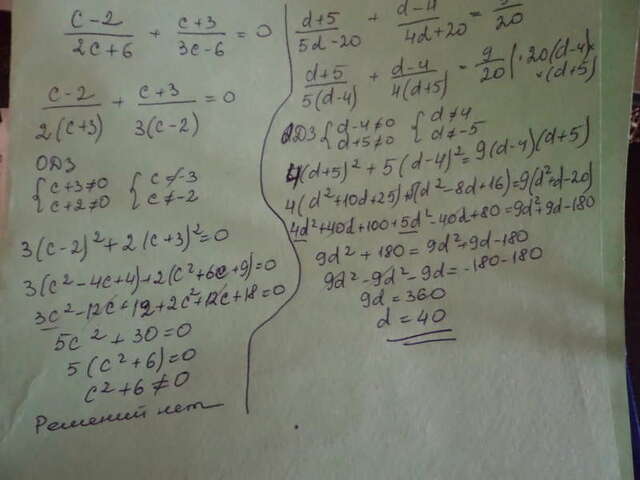 c-2/2c+6 + c+3/3c-6 = 0
c-2/2(c+3) + c+3/3(c-2) = 0
ОДЗ
{c+3≠0 {c≠-3
{c+2≠0 {c≠-2
3(c-2)²+2(c+3)²=0
3(c²-4c+4)+2(c²+6c+9)=0
3c²-12c+12+2c²+12c+18=0
5c²+30=0
5(c²+6)=0
c²+6≠0
Решений нет
d+5/5d-20 + d-4/4d+20 = 9/20
d+5/5(d-4) + d-4/4(d+5) = 9/20 |·20(d-4)×
×(d+5)
ОДЗ {d-4≠0 {d≠4
{d+5≠0 {d≠-5
4(d+5)²+5(d-4)²=9(d-4)(d+5)
4(d²+10d+25)+5(d²-8d+16)=9(d²+d-20)
4d²+40d+100+5d²-40d+80=9d²+9d-180
9d²+180=9d²+9d-180
9d²-9d²-9d=-180-180
9d=360
d=40